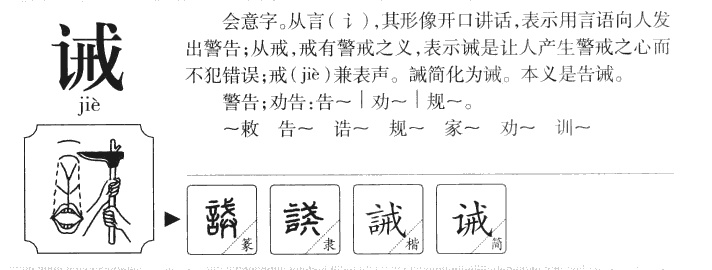 诫
jiè
会意字。从言(讠),其形像开口讲话,表示用言语向人发
出警告;从戒,戒有警戒之义,表示诫是让人产生警戒之心而
不犯错误;戒(jiè)兼表声。誡简化为诫。本义是告诫。
警告;劝告:告～｜劝～｜规～。
～敕 告～ 诰～ 规～ 家～ 劝～ 训～
誡 篆
誡 隶
誡 楷
诫 简